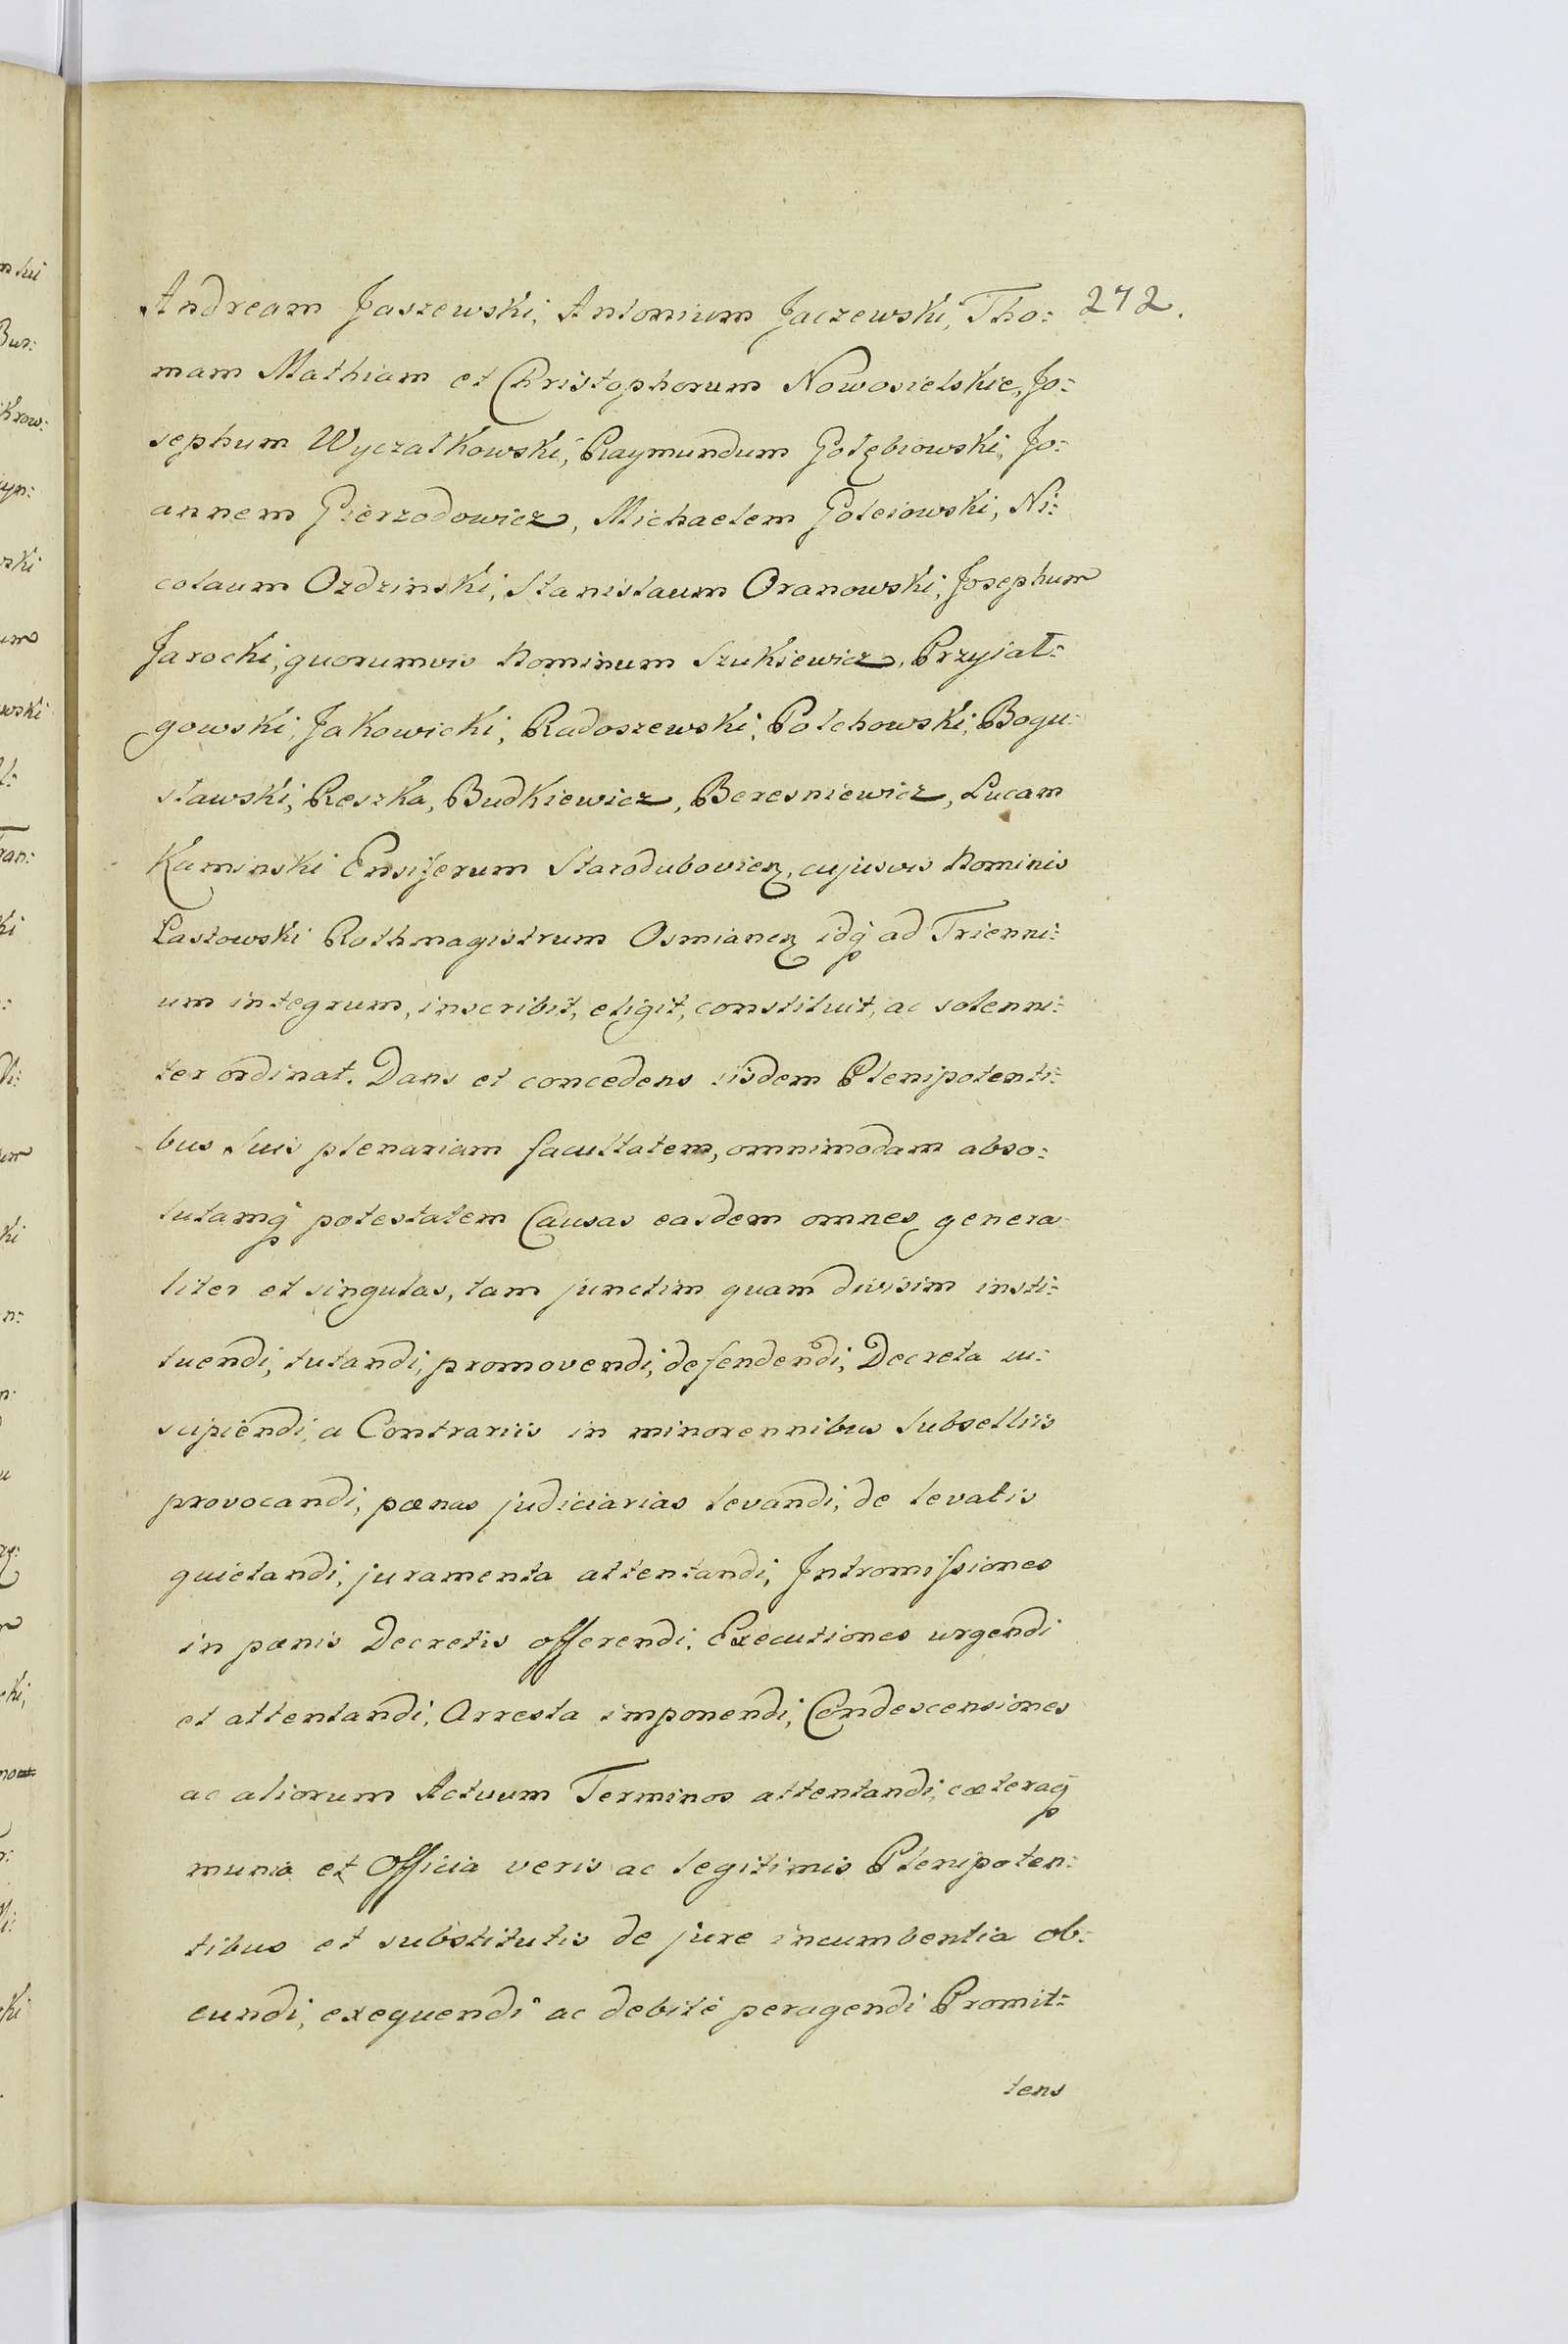 Andream Jaszewski, Antonium Jaczewski, Tho: 272.
mam Mathiam et Christophorum Nowosielskie, Jo:
sephum Wyczałkowski, Raymundum Gołębiowski, Jo:
annem Pierzodowicz, Michaelem Goleiowski, Ni:
colaum Ozdzinski, Stanislaum Oranowski, Josephum
Jarocki, quorumvis Nominum Szukiewicz, Przyjał:
gowski, Jakowicki, Radoszewski, Polchowski, Bogu:
sławski, Reszka, Budkiewicz, Beresniewicz, Lucam
Kaminski Ensiferum Starodubovien, cujusvis Nominis
Lastowski Rothmagistrum Osmianen idq ad Trienni:
um integrum, inscribit, eligit, constituit, ac solenni:
ter ordinat. Dans et concedens iisdem Plenipotenti:
bus suis plenariam facultatem, omnimodam abso:
lutamq potestatem Causas easdem omnes genera
liter et singulas, tam junctim quam divisim insti:
tuendi, tutandi, promovendi, defendendi, Decreta su:
scipiendi, a Contrariis in minorennibus Subselliis
provocandi, pœnas judiciarias levandi, de levatis
quietandi, juramenta attentandi, Intromissiones
in pœnis Decretis offerendi, Executiones urgendi
et attentandi, Arresta imponendi, Condescensiones
ac aliorum Actuum Terminos attentandi, cœteraq
munia et Officia veris ac legitimis Plenipoten:
tibus et substitutis de jure incumbentia ob:
eundi, exequendi ac debitè peragendi Promit:
tens